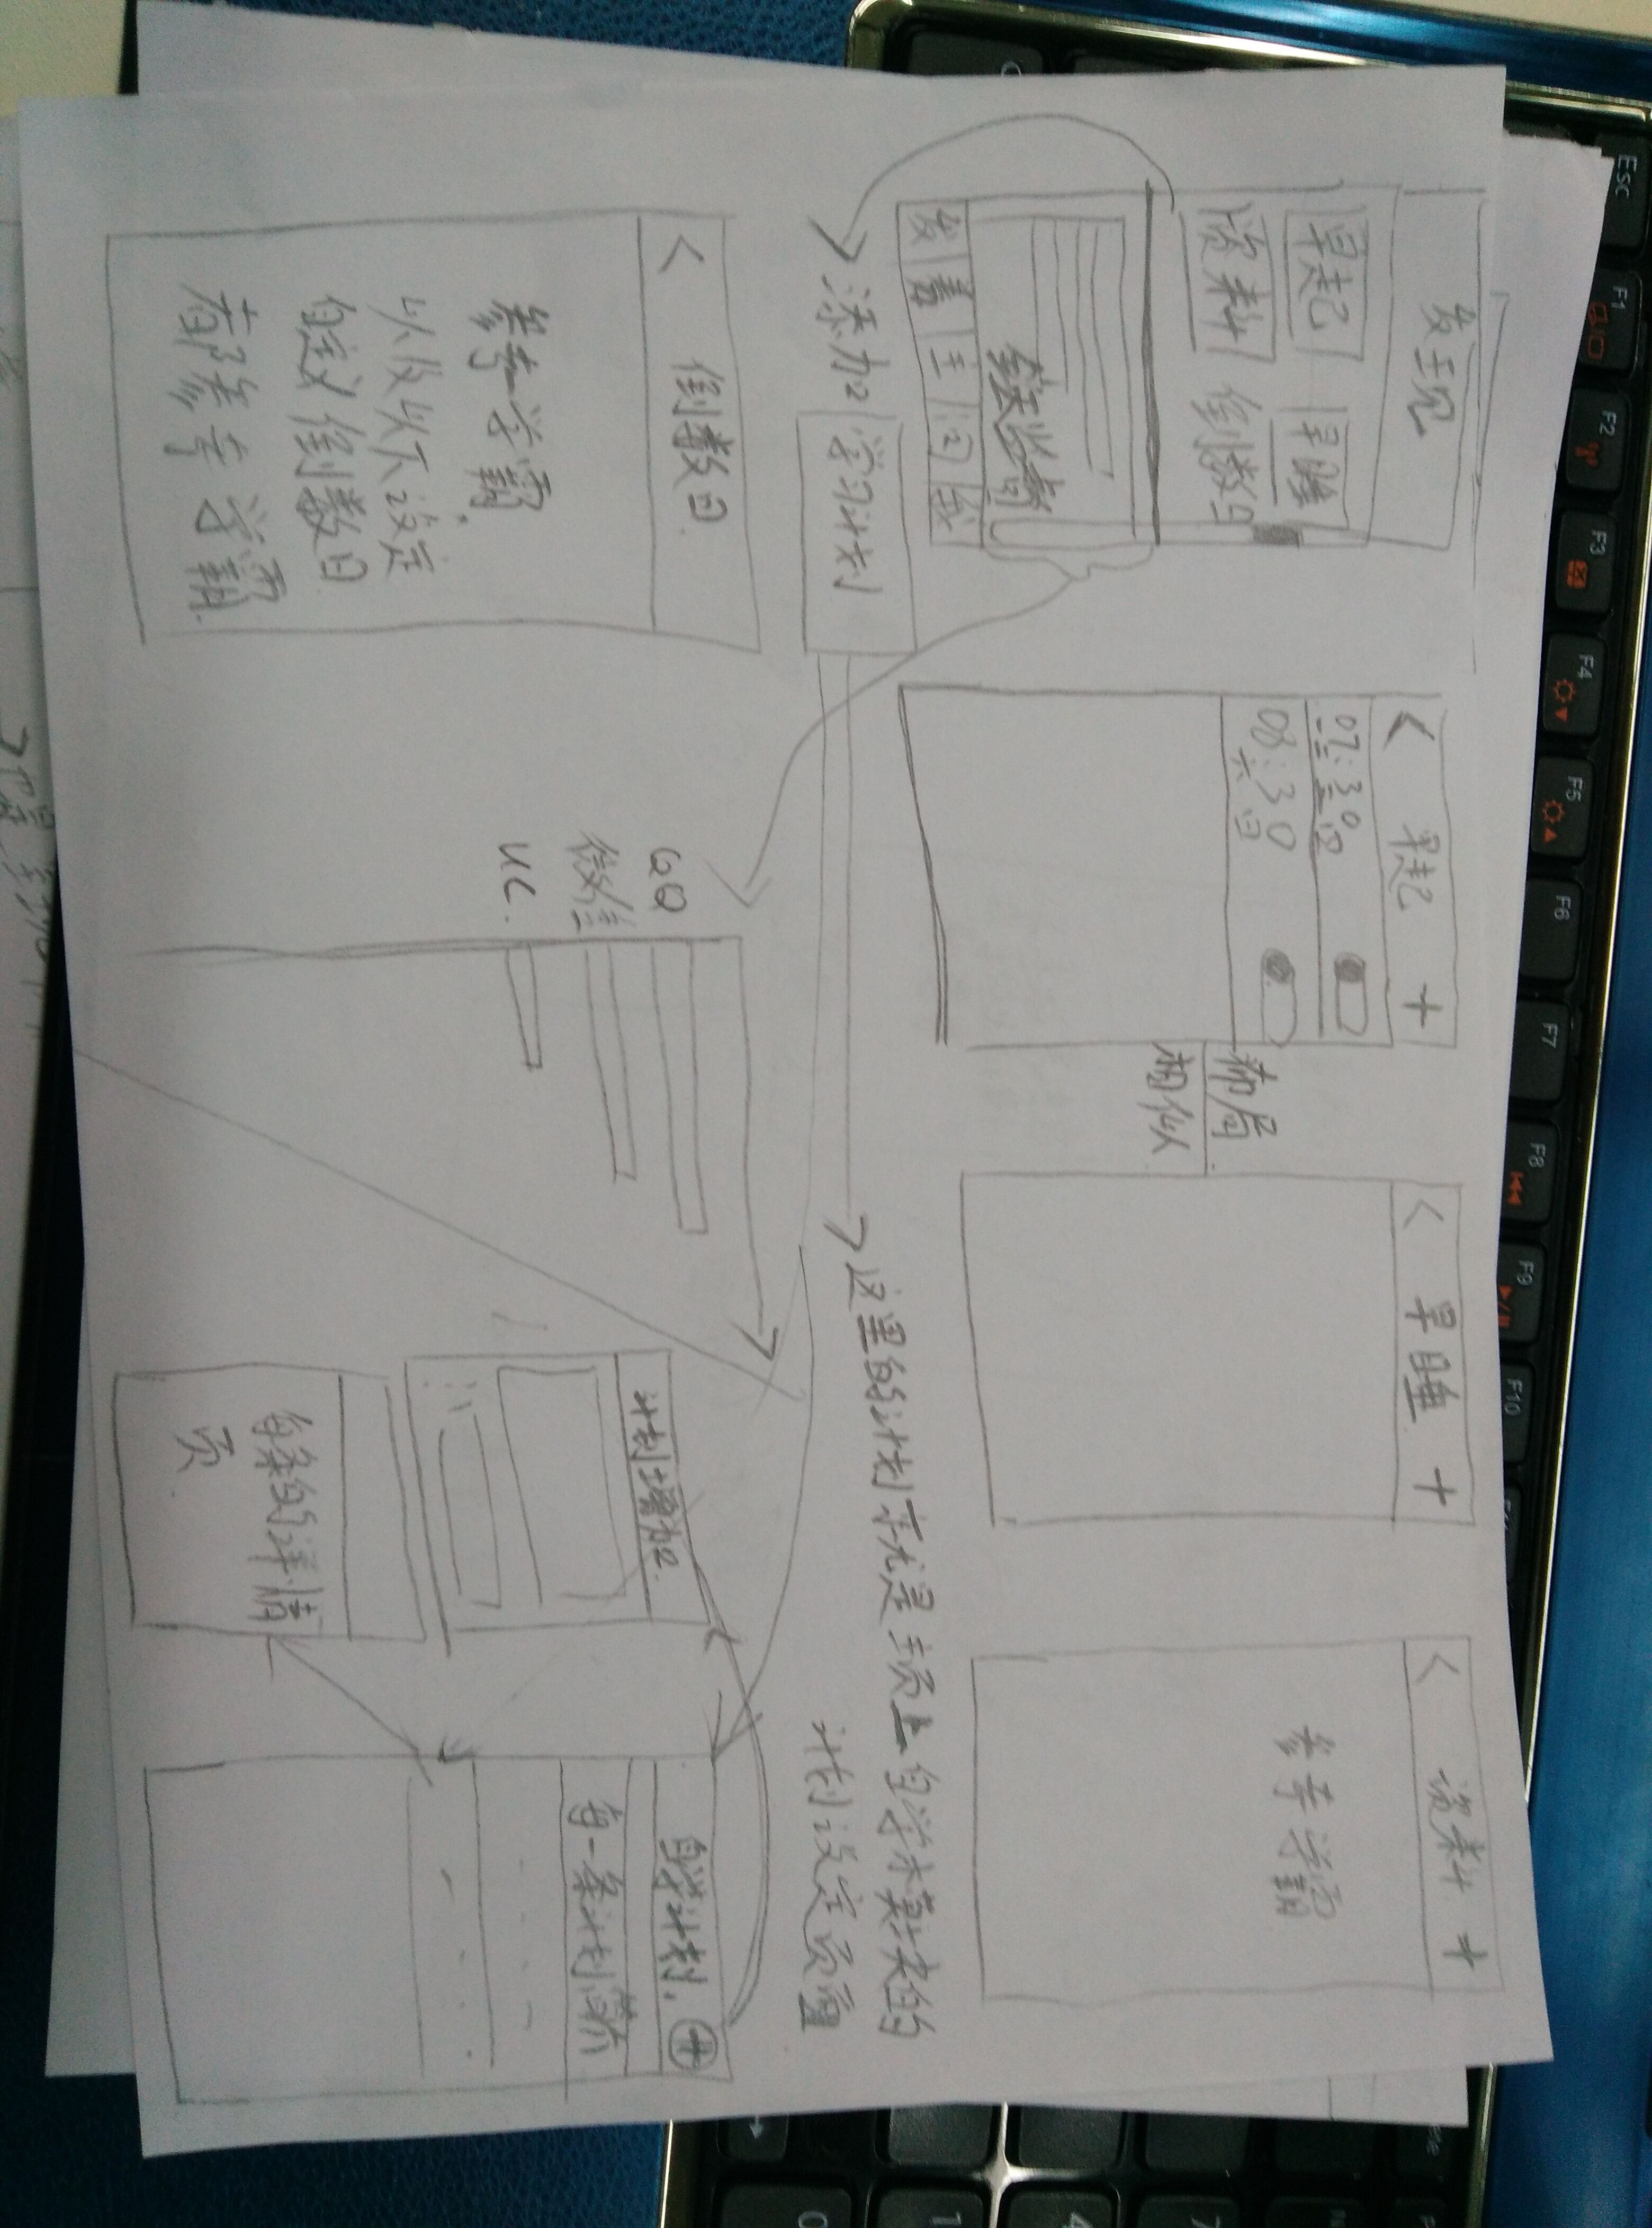 Esc F1 F2 F3 F4 F5 F6 F7 F8 F9 F10
发现
早起 早睡
资料 倒数日
全天监督
发 主 问 我
< 早起 +
07:30
一二三四
08:30
六日
布局
相似
< 早睡 +
< 资料 +
参考学霸
添加 学习计划
这里的计划就是主页上自学模块的
计划设定页面
< 倒数日
参考学霸.
以及以下设定
自定义倒数日
都参考学霸.
QQ
微信
UC.
计划增加.
每条的详情
页.
自学计划. +
每一条计划简介